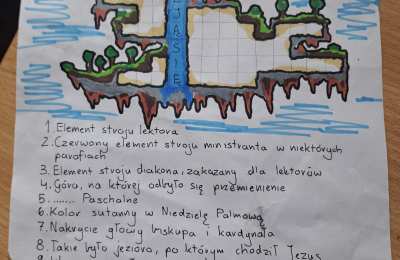 EJASIE
1. Element stroju lektora
2. Czerwony element stroju ministranta w niektórych
parafiach
3. Element stroju diakona, zakazany dla lektorów
4. Góra, na której odbyło się przemienienie
5. ....... Paschalne
6. Kolor sutanny w Niedzielę Palmową
7. Nakrycie głowy biskupa i kardynała
8. Takie było jezioro, po którym chodził Jezus
9.